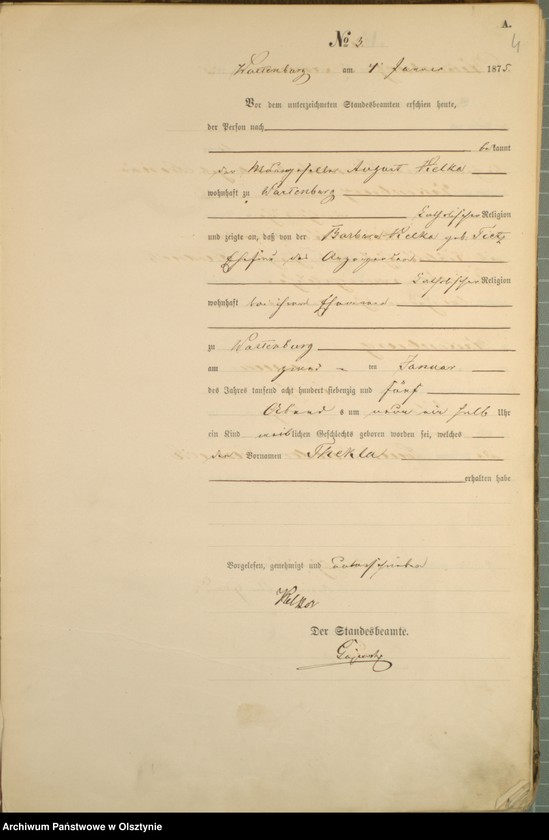 A.
4
No 3.
Wartenburg am 4 Januar 1875.
Vor dem unterzeichneten Standesbeamten erschien heute,
der Person nach
bekannt
der August
wohnhaft zu Wartenburg
katholischer Religion
und zeigte an, daß von der Barbara geb. Tietz
Ehefrau des Anzeigenden
katholischer Religion
wohnhaft bei ihrem Ehemanne
zu Wartenburg
am ten Januar
des Jahres tausend acht hundert siebenzig und fünf
Abends um neun ein halb Uhr
ein Kind weiblichen Geschlechts geboren worden sei, welches
den Vornamen Thekla
erhalten habe
Vorgelesen, genehmigt und unterschrieben
Der Standesbeamte.
Archiwum Państwowe w Olsztynie